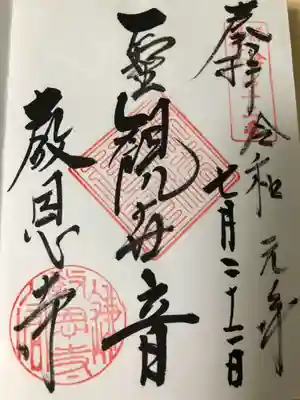 奉拝 令和元年
七月二十一日
聖観世音
教恩寺